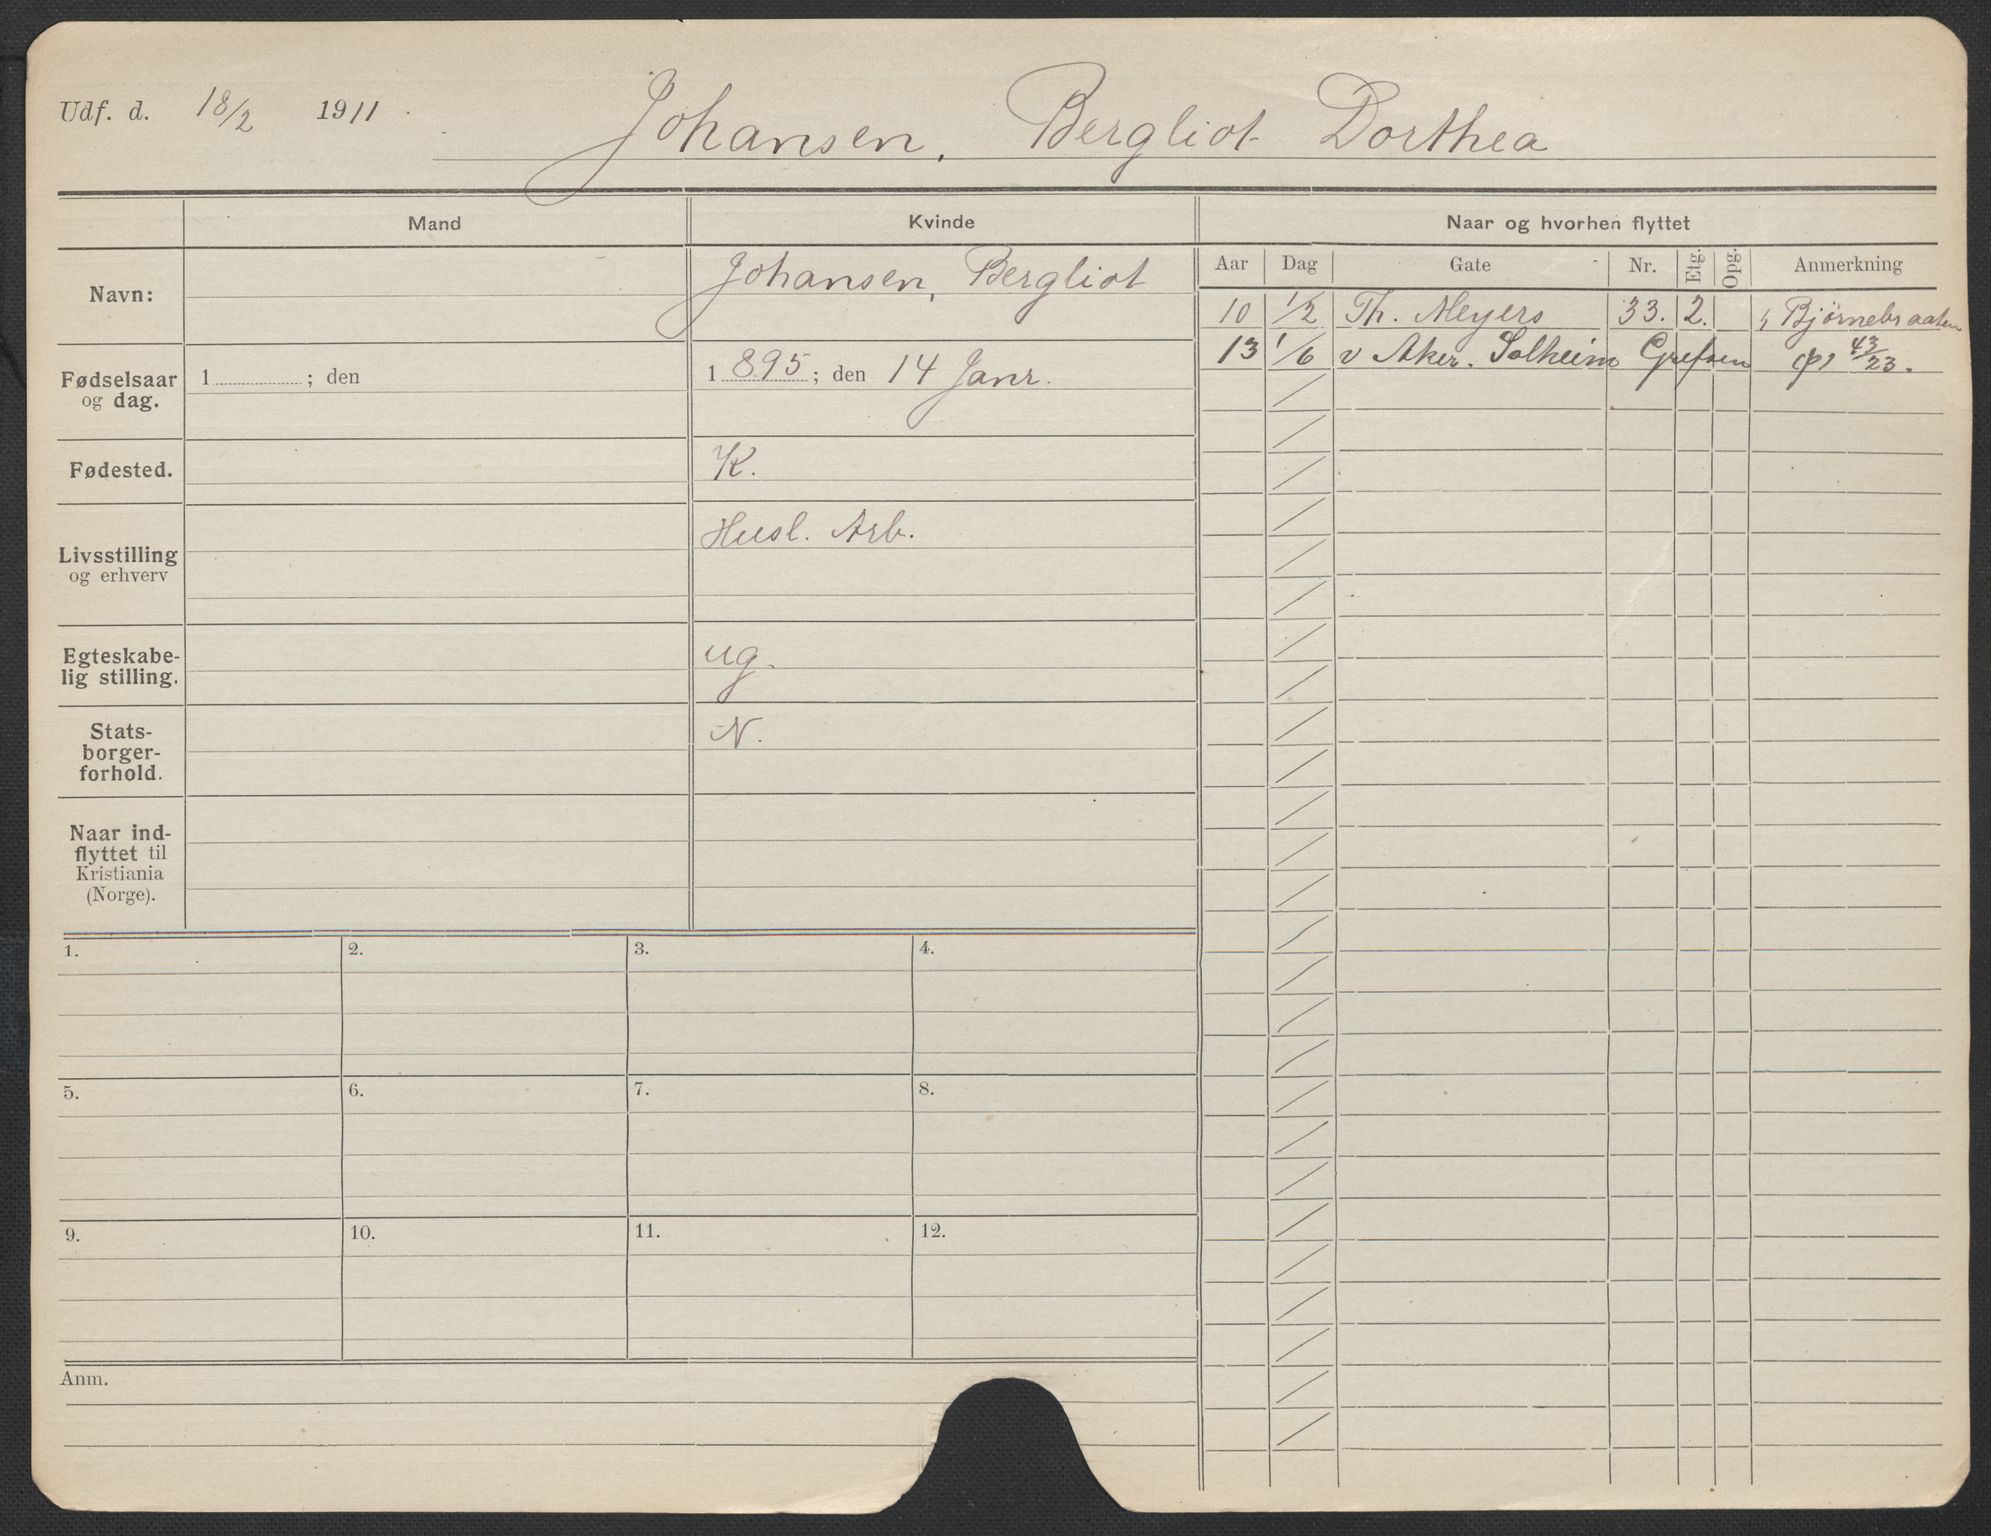 Udf. d. 18/2 1911
Johansen, Bergliot Dorthea
Mand Kvinde Naar og hvorhen flyttet
Aar Dag Gate Nr. Etg. Opg. Anmerkning
Navn: Johansen, Bergliot
10 1/2 Th. Meyers 33. 2. Bjørnebraaten
13 1/6 v Aker. Solheim Grefsen 43/23.
Fødselsaar og dag. 1 ; den 1 895 ; den 14 Janr.
Fødested. K.
Livsstilling og erhverv Husl. Arb.
Egteskabe-
lig stilling. ug.
Stats-
borger-
forhold. N.
Naar ind-
flyttet til
Kristiania
(Norge).
1. 2. 3. 4.
5. 6. 7. 8.
9. 10. 11. 12.
Anm.